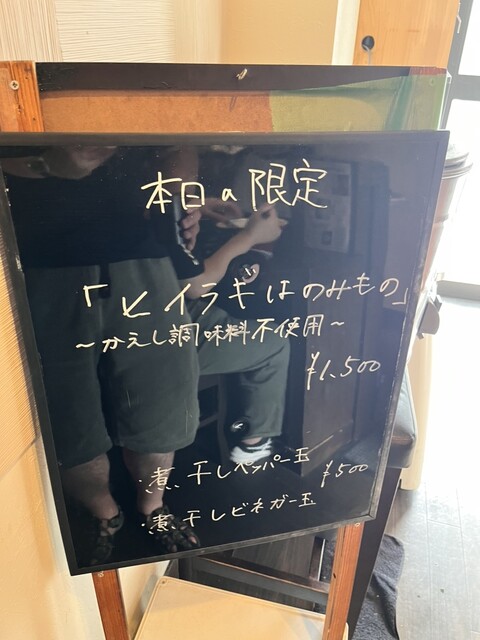 本日の限定
「ヒイラギはのみもの」
～かえし調味料不使用～
¥1,500
・煮干しペッパー玉 ¥500
・煮干しビネガー玉